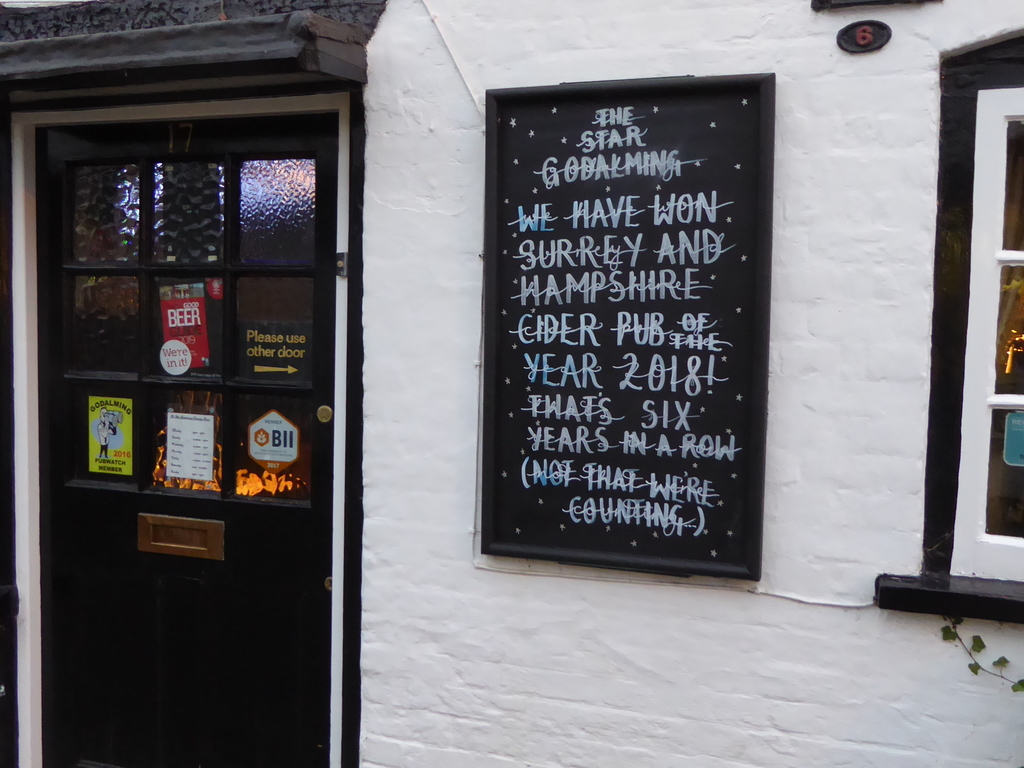 17
6
THE
STAR
GODALMING
WE HAVE WON
SURREY AND
HAMPSHIRE
CIDER PUB OF THE
YEAR 2018!
THAT'S SIX
YEARS IN A ROW
(NOT THAT WE'RE
COUNTING...)
GOOD
BEER
We're
in it!
Please use
other door
GODALMING
2016
PUBWATCH
MEMBER
MEMBER
BII
2017